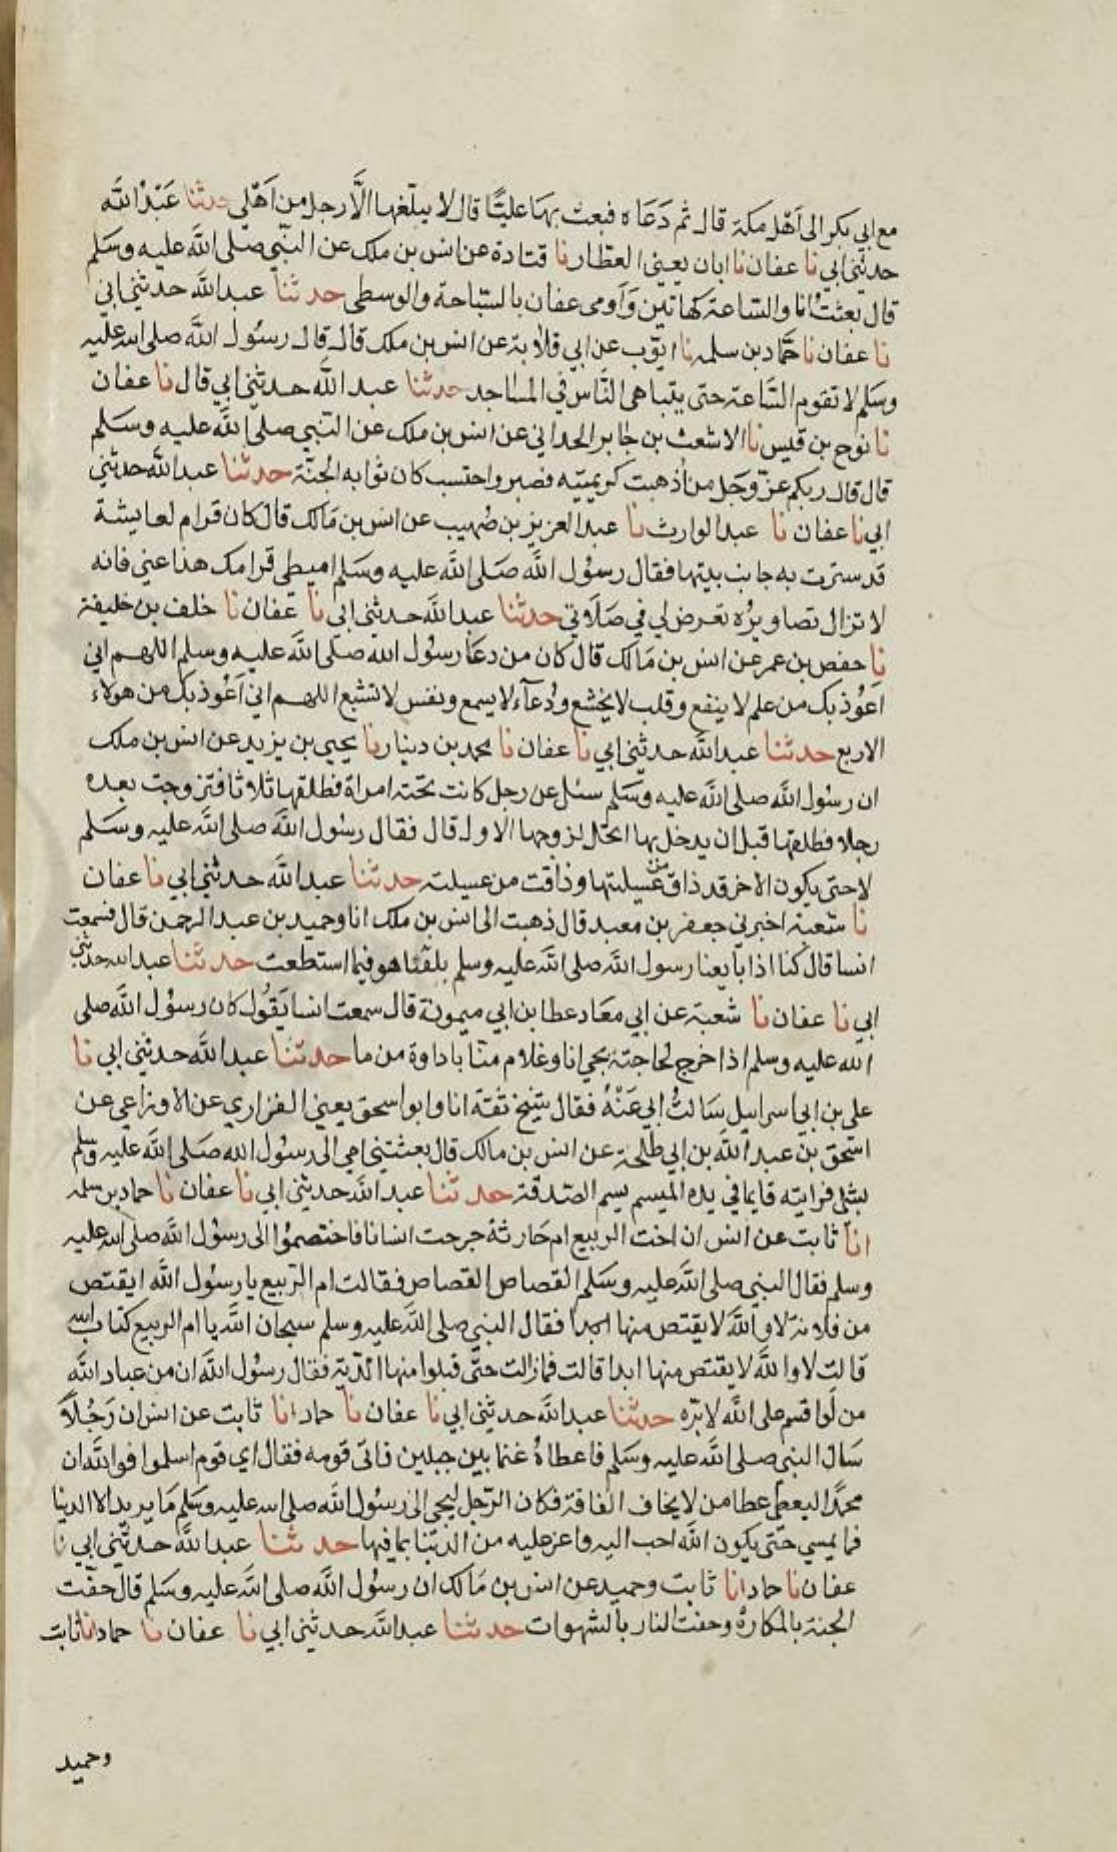 مع ابي بكر الى اهل مكة قال ثم دعاه فبعث بها عليا قال لا يبلغها الا رجل من اهلي حدثنا عبد الله
حدثني ابي نا عفان نا ابان يعني العطار نا قتادة عن انس بن ملك عن النبي صلى الله عليه وسلم
قال بعثت انا والساعة كهاتين واومى عفان بالسباحة والوسطى حدثنا عبد الله حدثني ابي
نا عفان نا حماد بن سلمه نا ايوب عن ابي قلابة عن انس بن ملك قال قال رسول الله صلى الله عليه
وسلم لا تقوم الساعة حتى يتباهى الناس في المساجد حدثنا عبد الله حدثني ابي قال نا عفان
نا نوح بن قيس نا الاشعث بن جابر الحداني عن انس بن ملك عن النبي صلى الله عليه وسلم
قال قال ربكم عز وجل من اذهبت كريمتيه فصبر واحتسب كان ثوابه الجنة حدثنا عبد الله حدثني
ابي نا عفان نا عبد الوارث نا عبد العزيز بن صهيب عن انس بن مالك قال كان قرام لعايشة
قد سترت به جانب بيتها فقال رسول الله صلى الله عليه وسلم اميطي قرامك هذا عني فانه
لا تزال تصاويره تعرض لي في صلاتي حدثنا عبد الله حدثني ابي نا عفان نا خلف بن خليفة
نا حفص بن عمر عن انس بن مالك قال كان من دعا رسول الله صلى الله عليه وسلم اللهم اني
اعوذ بك من علم لا ينفع وقلب لا يخشع ودعاء لا يسمع ونفس لا تشبع اللهم اني اعوذ بك من هولاء
الاربع حدثنا عبد الله حدثني ابي نا عفان نا محمد بن دينار نا يحيى بن يزيد عن انس بن ملك
ان رسول الله صلى الله عليه وسلم سئل عن رجل كانت تحته امراة فطلقها ثلاثا فتزوجت بعده
رجلا فطلقها قبل ان يدخل بها اتحل لزوجها الاول قال فقال رسول الله صلى الله عليه وسلم
لا حتى يكون الاخر قد ذاق من عسيلتها وذاقت من عسيلته حدثنا عبد الله حدثني ابي نا عفان
نا شعبة اخبرني جعفر بن معبد قال ذهبت الى انس بن ملك انا وحميد بن عبد الرحمن قال فسمعت
انسا قال كنا اذا بايعنا رسول الله صلى الله عليه وسلم يلقننا هو فيما استطعت حدثنا عبد الله حدثني
ابي نا عفان نا شعبة عن ابي معاد عطا بن ابي ميمونة قال سمعت انسا يقول كان رسول الله صلى
الله عليه وسلم اذا خرج لحاجته نجي انا وغلام منا باداوة من ما حدثنا عبد الله حدثني ابي نا
علي بن ابي اسرايل سالت ابي عنه فقال شيخ ثقة انا وابو اسحق يعني الفزاري عن الاوزاعي عن
اسحق بن عبد الله بن ابي طلحة عن انس بن مالك قال بعثتني امي الى رسول الله صلى الله عليه وسلم
بشئ فرايته قايما في يده الميسم يسم الصدقة حدثنا عبد الله حدثني ابي نا عفان نا حماد بن سلمه
انا ثابت عن انس ان اخت الربيع ام حارثة جرحت انسانا فاختصموا الى رسول الله صلى الله عليه
وسلم فقال النبي صلى الله عليه وسلم القصاص القصاص فقالت ام الربيع يا رسول الله ايقتص
من فلانة لا والله لا يقتص منها ابدا فقال النبي صلى الله عليه وسلم سبحان الله يا ام الربيع كتاب الله
قالت لا والله لا يقتص منها ابدا قالت فما زالت حتى قبلوا منها الدية فقال رسول الله ان من عباد الله
من لو اقسم على الله لابره حدثنا عبد الله حدثني ابي نا عفان نا حماد انا ثابت عن انس ان رجلا
سال النبي صلى الله عليه وسلم فاعطاه غنما بين جبلين فاتى قومه فقال اي قوم اسلموا فوالله ان
محمدا ليعطي عطا من لا يخاف الفاقة فكان الرجل ليجي الى رسول الله صلى الله عليه وسلم ما يريد الا الدنيا
فما يمسي حتى يكون الله احب اليه واعز عليه من الدنيا بما فيها حدثنا عبد الله حدثني ابي نا
عفان نا حماد انا ثابت وحميد عن انس بن مالك ان رسول الله صلى الله عليه وسلم قال حفت
الجنة بالمكاره وحفت النار بالشهوات حدثنا عبد الله حدثني ابي نا عفان نا حماد انا ثابت
وحميد